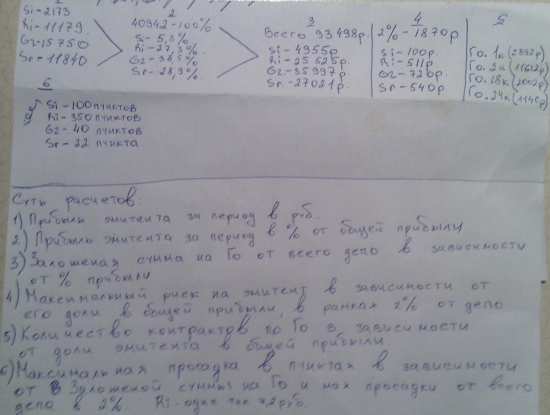 1
Si-2173
Ri-11179
Gz-15750
Sr-11840
2
40942-100%
Si-5,3%
Ri-27,3%
Gz-38,5%
Sr-28,9%
3
Всего 93498р.
Si-4955р
Ri-25525р
Gz-35997р
Sr-27021р.
4
2%-1870р
Si-100р.
Ri-511р
Gz-720р.
Sr-540р.
5
Го. 1к (2892р)
Го. 2к (11612р)
Го. 18к (2002р)
Го. 24к (1146р)
6
Si-100 пунктов
Ri-350 пунктов
Gz-40 пунктов
Sr-22 пункта
Суть расчетов:
1) Прибыль эмитента за период в руб.
2) Прибыль эмитента за период в % от общей прибыли
3) Заложеная сумма на Го от всего депо в зависимости
от % прибыли
4) Максимальный риск на эмитент в зависимости от
его доли в общей прибыли, в рамках 2% от депо
5) Количество контрактов по Го в зависимости
от доли эмитента в общей прибыли
6) Максимальная просадка в пунктах в зависимости
от заложеной суммы на Го и мах просадки от всего
депо в 2%. Ri-один